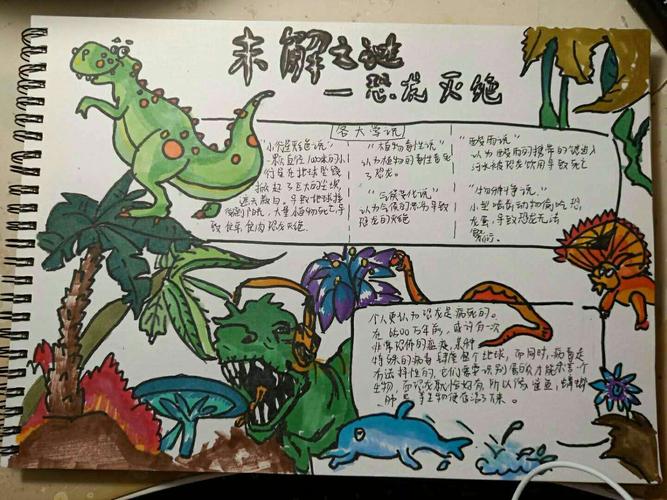 未解之谜
一恐龙灭绝
各大学说
"小行星撞击说"
一颗直径10km的小
行星在地球坠毁
掀起了巨大的尘埃
遮天蔽日，导致地球接
收阳光，大量植物死亡导
致食草食肉恐龙灭绝
"植物毒性说"
认为植物的毒性毒死
了恐龙。
"气候变化说"
认为气候的导致
恐龙的灭绝
"酸雨说"
认为酸雨的携带的锶进入
污水被恐龙饮用导致死亡
"小型哺乳动物偷吃恐
龙蛋，导致恐龙无法
繁衍。
个人更认为恐龙是病死的。
在6500万年前，或许有一次
非常恐怖的瘟疫，某种
特殊的病毒肆虐整个地球，而同时，病毒是
有活特性的，它们需要识别蛋白质才能杀害一个
生物，而恐龙就恰好有，所以像鲨鱼，蟑螂
等生物便存活了下来。